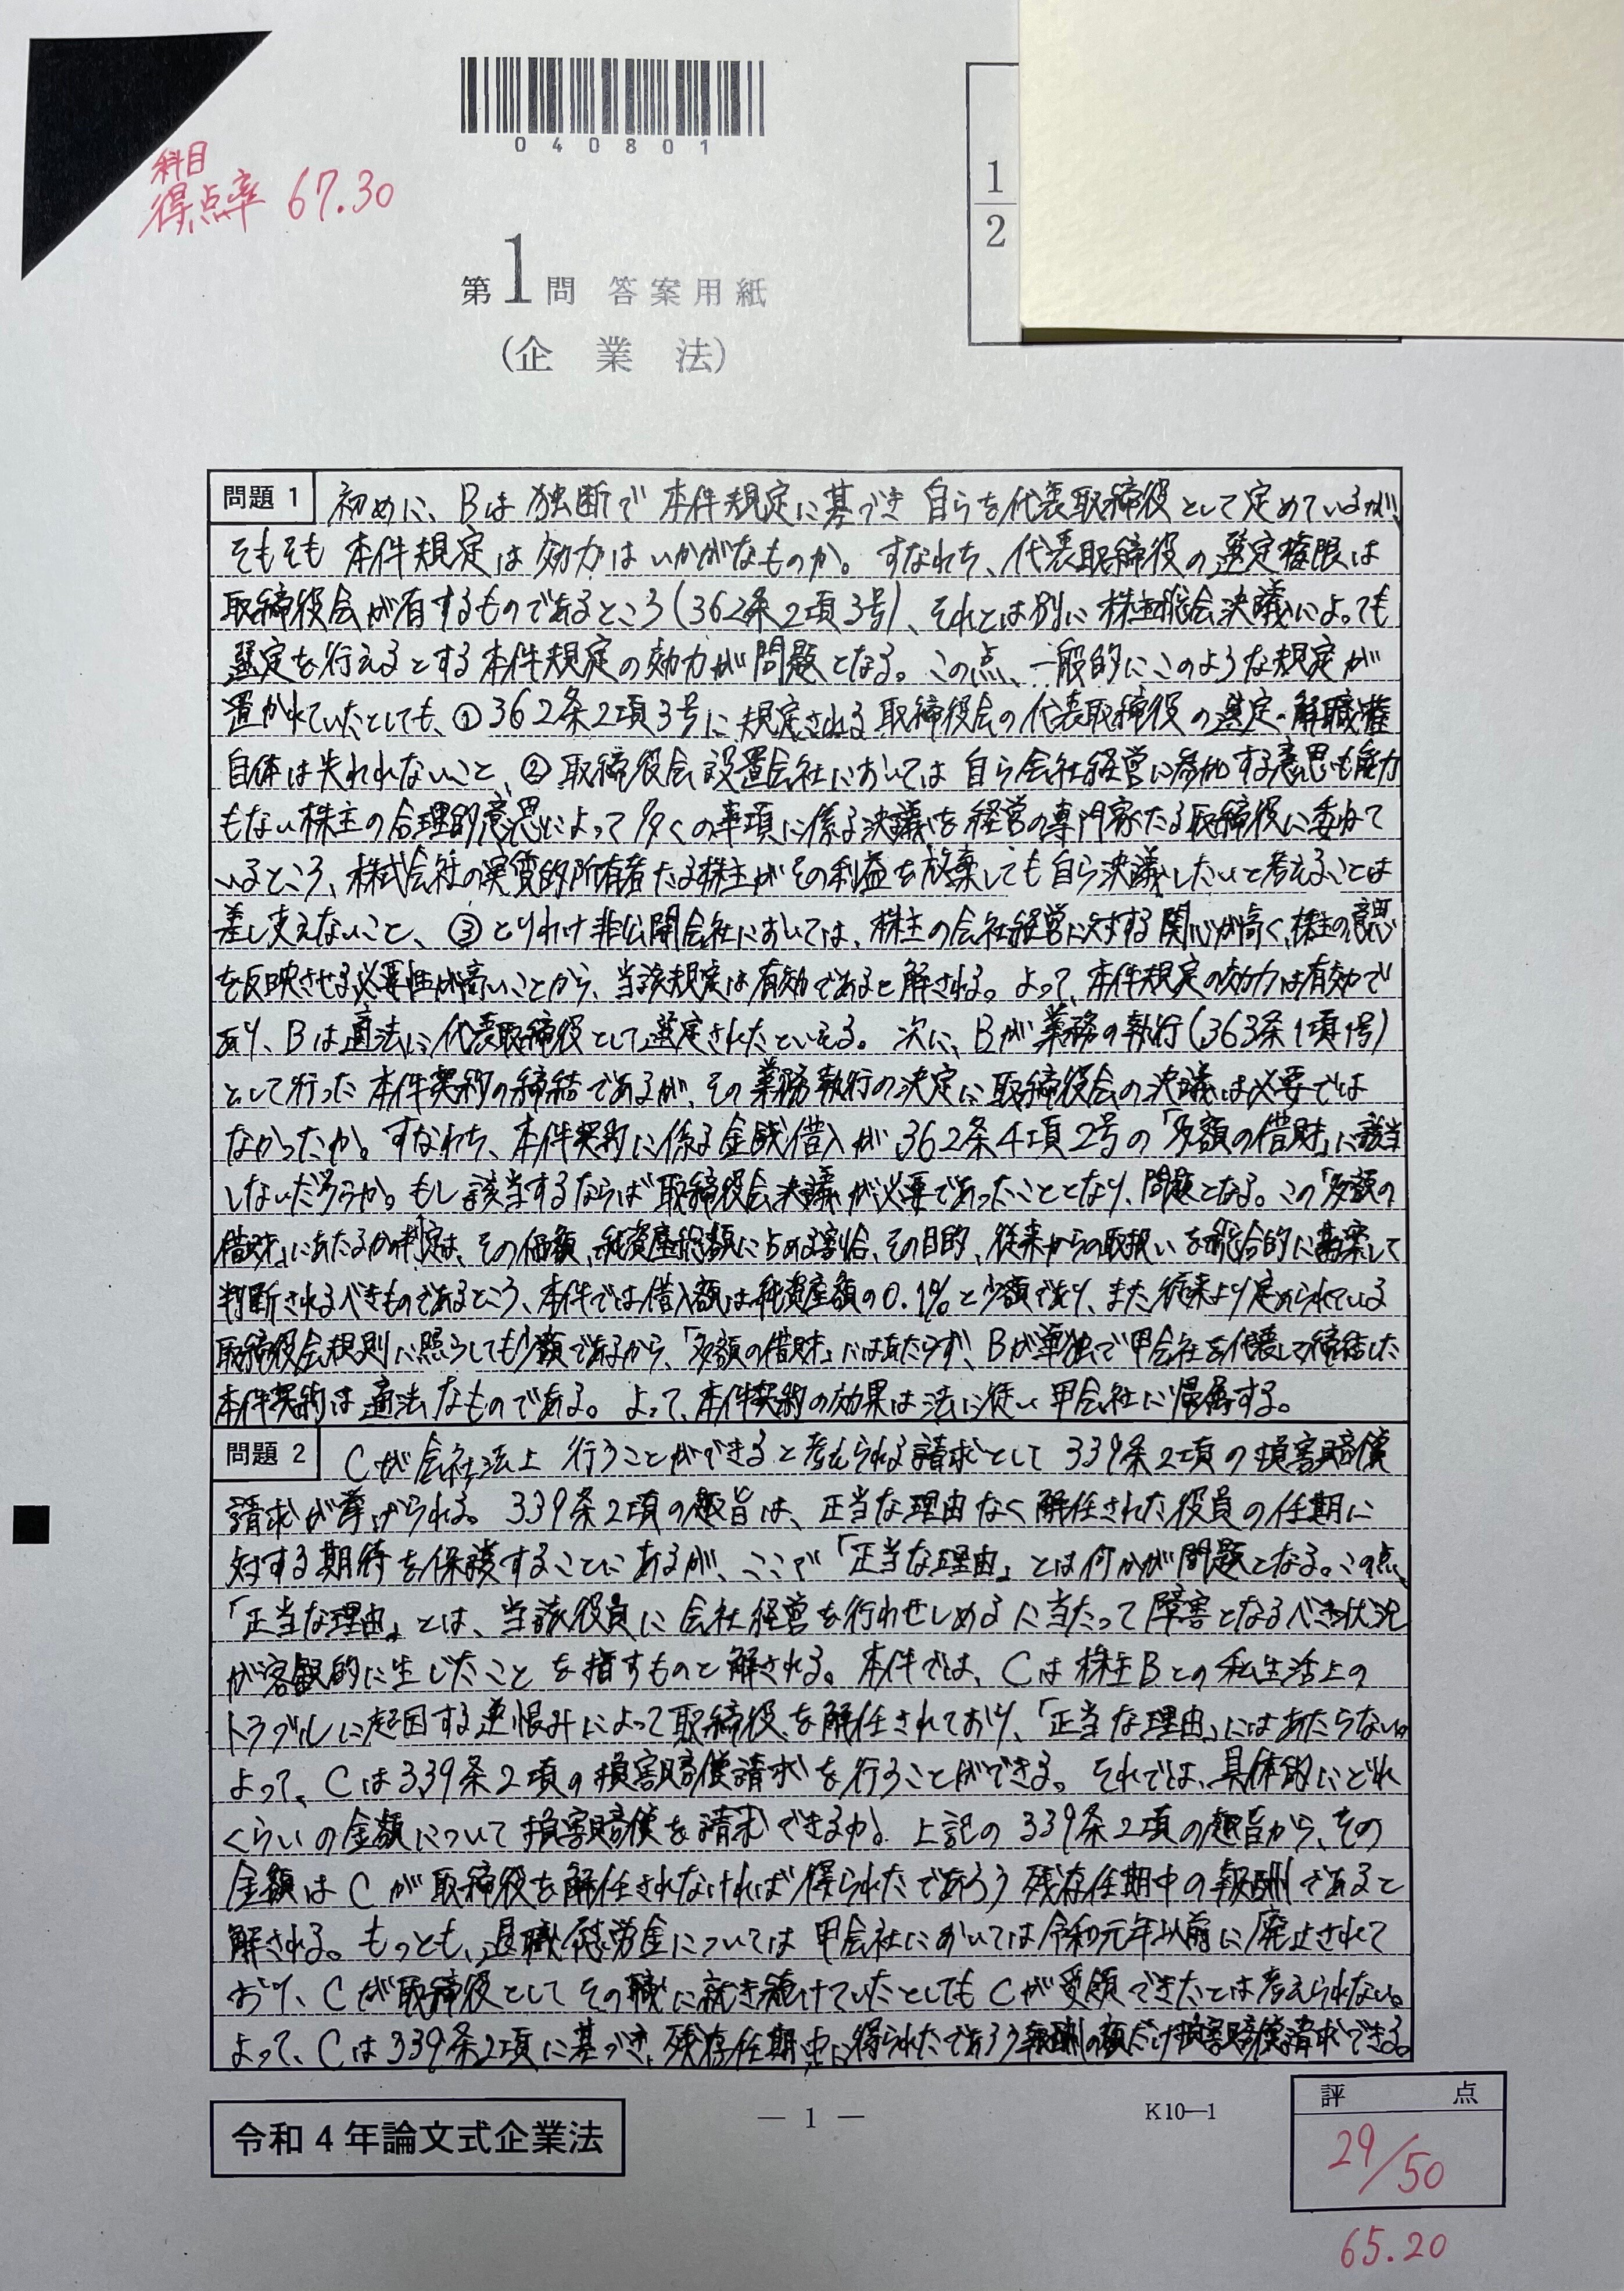 040801
科目
得点率 67.30
1
2
第1問 答案用紙
(企業法)
問題 1 初めに、Bは独断で本件規定に基づき自らを代表取締役として定めているが、
そもそも本件規定は効力はいかがなものか。すなわち、代表取締役の選定権限は
取締役会が有するものであるところ(362条2項3号)、それとは別に株主総会決議によっても
選定を行えるとする本件規定の効力が問題となる。この点、一般的にこのような規定が
置かれていたとしても、①362条2項3号に規定される取締役会の代表取締役の選定・解職権
自体は失われないこと、②取締役会設置会社においては自ら会社経営に参加する意思も能力
もない株主の合理的意思によって多くの事項に係る決議を経営の専門家たる取締役に委ねて
いるところ、株式会社の実質的所有者たる株主がその利益を放棄しても自ら決議したいと考えることは
差し支えないこと、③とりわけ非公開会社においては、株主の会社経営に対する関心が高く、株主の意思
を反映させる必要性が高いことから、当該規定は有効であると解される。よって、本件規定の効力は有効で
あり、Bは適法に代表取締役として選定されたといえる。次に、Bが業務の執行(363条1項1号)
として行った本件契約の締結であるが、その業務執行の決定に取締役会の決議は必要では
なかったか。すなわち、本件契約に係る金銭借入が362条4項2号の「多額の借財」に該当
しないだろうか。もし該当するならば取締役会決議が必要であったこととなり、問題となる。この「多額の
借財」にあたるかの判定は、その価額、総資産総額に占める割合、その目的、従来からの取扱いを総合的に勘案して
判断されるべきものであるところ、本件では借入額は総資産額の0.1%と少額であり、また従来より定められている
取締役会規則に照らしても少額であるから、「多額の借財」にはあたらず、Bが単独で甲会社を代表して締結した
本件契約は適法なものである。よって、本件契約の効果は法に従い甲会社に帰属する。
問題 2 Cが会社法上行うことができると考えられる請求として339条2項の損害賠償
請求が挙げられる。339条2項の趣旨は、正当な理由なく解任された役員の任期に
対する期待を保護することにあるが、ここで「正当な理由」とは何かが問題となる。この点、
「正当な理由」とは、当該役員に会社経営を行わせしめるに当たって障害となるべき状況
が客観的に生じたことを指すものと解される。本件では、Cは株主Bとの私生活上の
トラブルに起因する逆恨みによって取締役を解任されており、「正当な理由」にはあたらない。
よって、Cは339条2項の損害賠償請求を行うことができる。それでは、具体的にどれ
くらいの金額について損害賠償を請求できるか。上記の339条2項の趣旨から、その
金額はCが取締役を解任されなければ得られたであろう残存任期中の報酬であると
解される。もっとも、退職慰労金については甲会社においては令和元年以前に廃止されて
おり、Cが取締役としてその職に就き続けていたとしてもCが受領できたとは考えられない。
よって、Cは339条2項に基づき、残存任期中に得られたであろう報酬の額だけ損害賠償請求できる。
令和4年論文式企業法
— 1 —
K10—1
評点
29/50
65.20